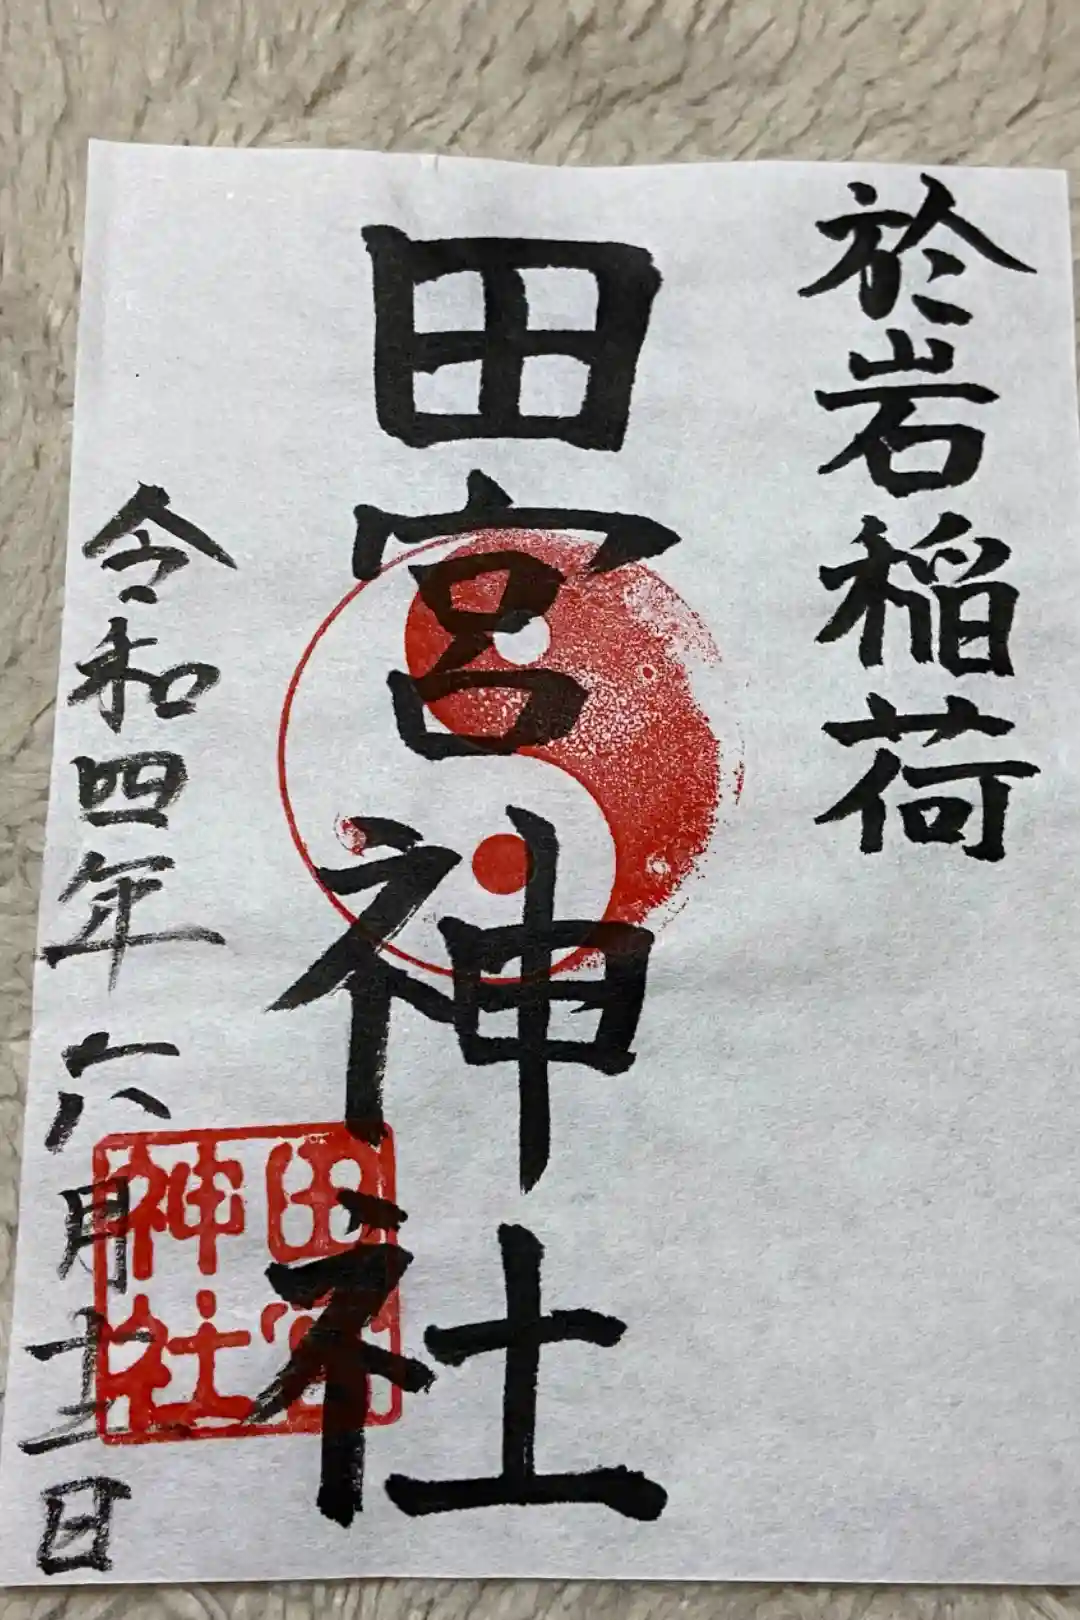 於岩稲荷
田宮神社
令和四年六月十五日
田宮
神社